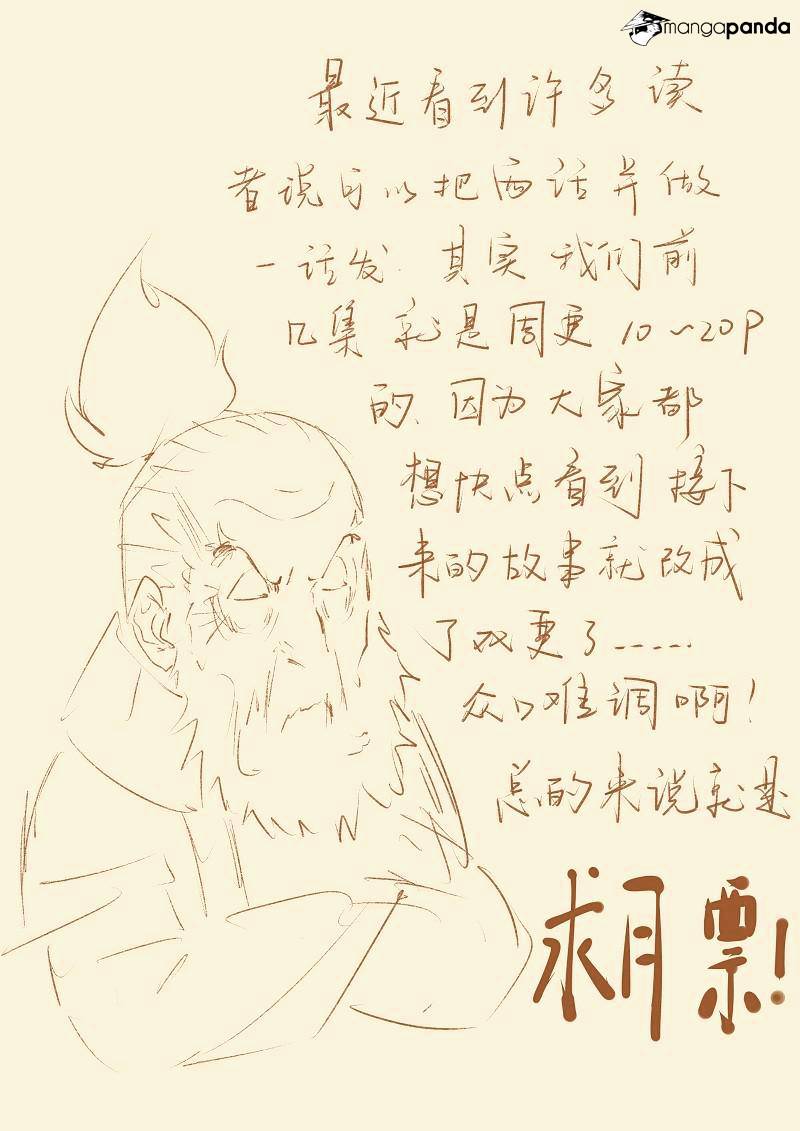 mangapanda
最近看到许多读
者说可以把两话并做
一话发.其实我们前
几集就是周更10~20P
的、因为大家都
想快点看到接下
来的故事就改成
了双更了......
众口难调啊!
总的来说就是
求月票!